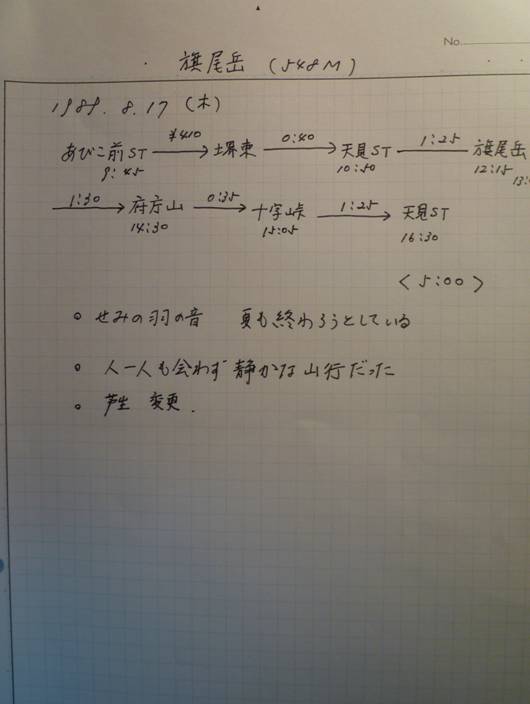 No.
旗尾岳 (548M)
1989.8.17 (木)
¥410 0:40 1:25
あびこ前ST → 堺東 → 天見ST 旗尾岳
9:45 10:50 12:15
13:
1:30 0:35 1:25
→ 府庁山 → 十字峠 → 天見ST
14:30 15:05 16:30
<5:00>
○ せみの羽の音 夏も終わろうとしている
○ 人一人も会わず静かな山行だった
○ 芦生 変更.